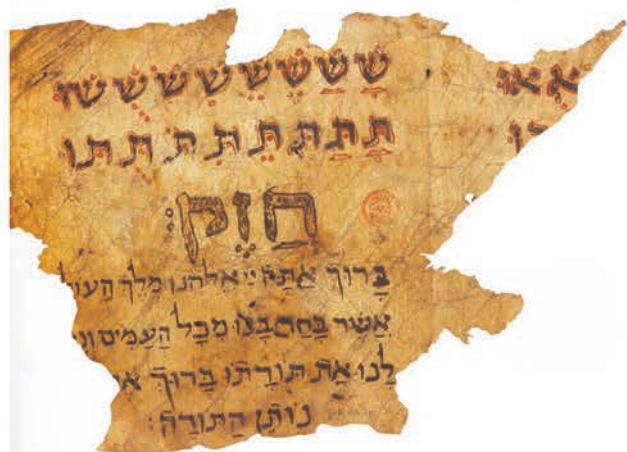 אֻ אוּ שָׁ שַׁ שֶׁ שֵׁ שְׁ שִׁ שֻׁ שׁוּ
תָּ תַּ תֶּ תֵּ תֹּ תִּ תֻּ תּוּ
חֲזֵק:
בָּרוּךְ אַתָּה יי אלהנו מֶלֶךְ הָעול
אֲשֶׁר בָּחַר בָּנוּ מִכָּל הָעַמִּים ונ
לָנוּ אֶת תּוֹרָתוֹ בָּרוּךְ א
נוֹתֵן הַתּוֹרָה: